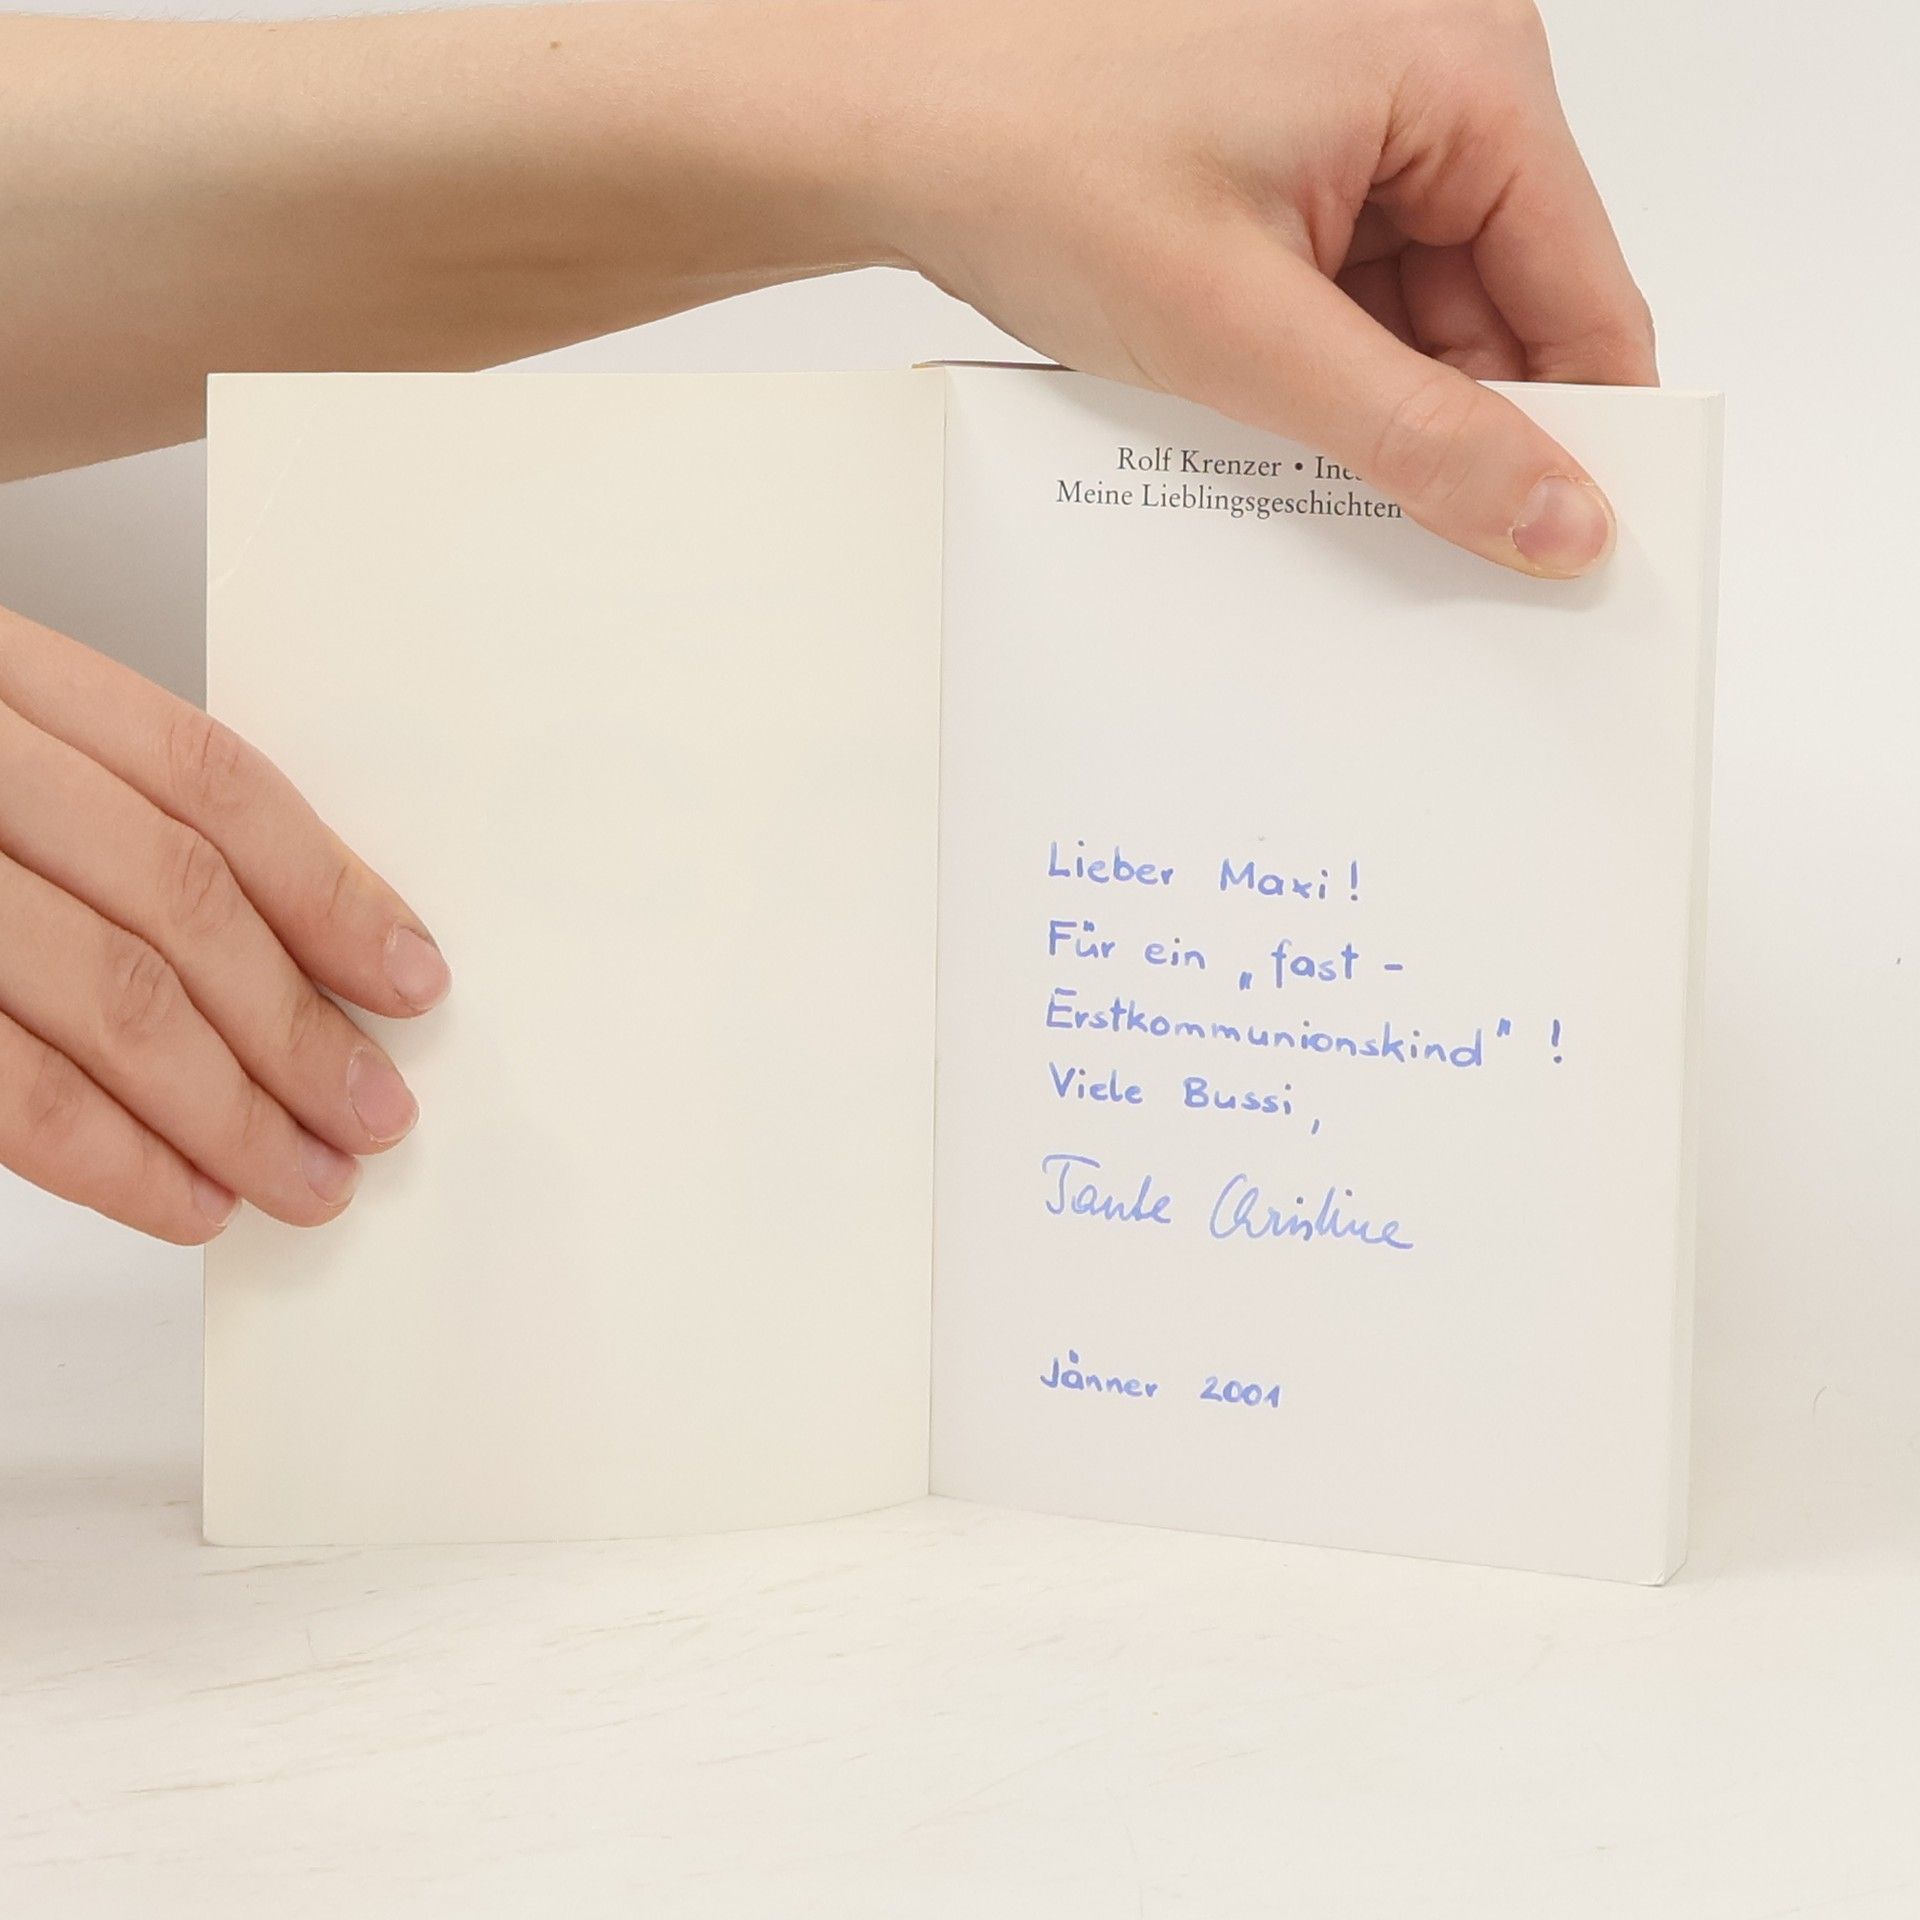 Rolf Krenzer • Ines
Meine Lieblingsgeschichten
Lieber Maxi!
Für ein „fast -
Erstkommunionskind" !
Viele Bussi,
Tante Christine
Jänner 2001